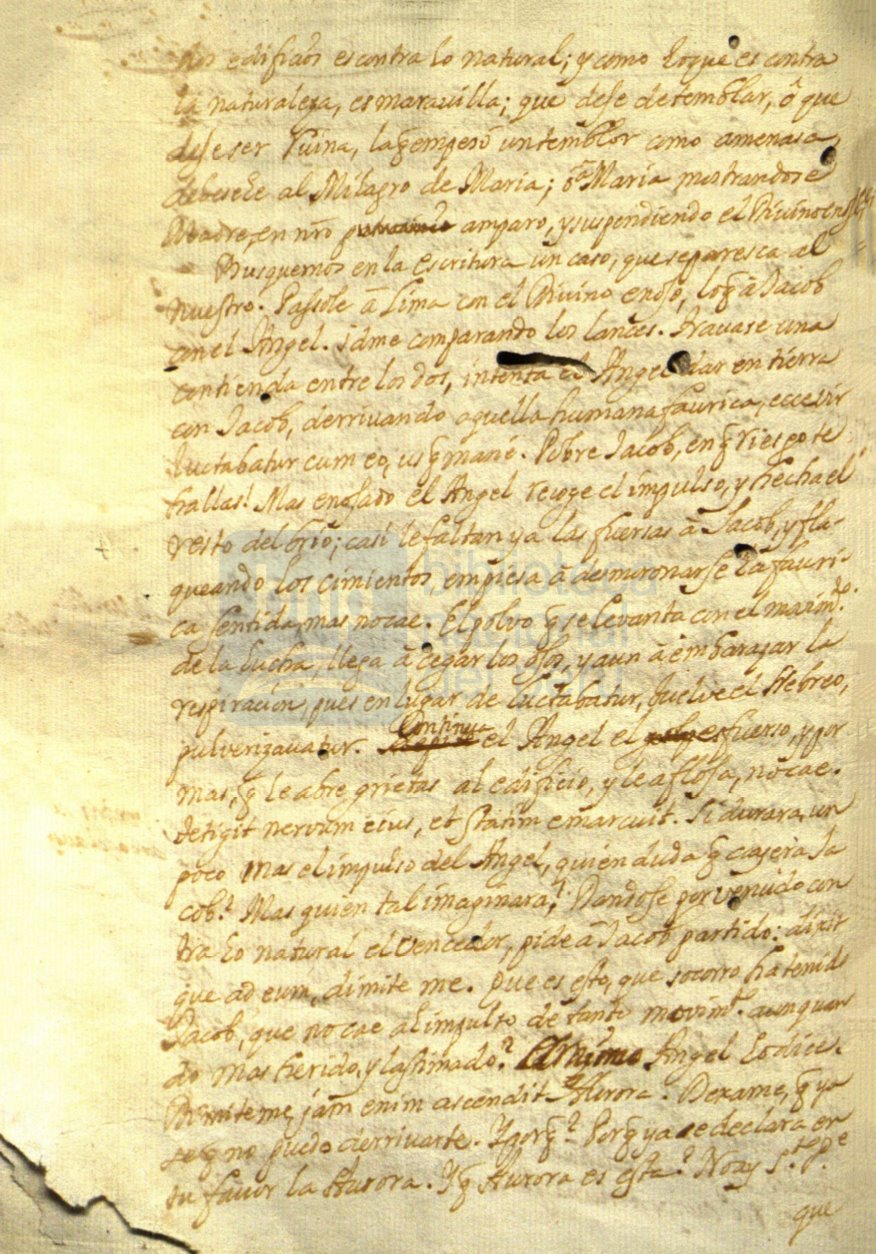 nos edificios es contra lo natural; y como lo que es contra
la naturaleza, es marauilla; que dexe de temblar, ô que
dexe ser ruina, la q̃ empesó un temblor como amenasa,
debesele al Milagro de Maria; ô a Maria mostrandose
Madre, en nr̃o amparo, y suspendiendo el Divino enojo,
Busquemos en la Escritura un caso, que se paresca al
nuestro. Passole â Lima con el Divino enojo, lo q̃ â Jacob
con el Angel. idme comparando los lances. trauase una
contienda entre los dos, intenta el Angel dar en tierra
con Jacob, derrivando aquella humana faurica, ecce vir
luctabatur cum eo, usq̃ mané. Pobre Jacob, en q̃ riesgo te
hallas! Mas enojado el Angel recoge el impulso, y hecha el
resto del brio; casi le faltan ya las fuersas â Jacob, y fla-
queando los cimientos, empiesa â desmoronarse la fauri-
ca sentida, mas no cae. El polvo q̃ se levanta con el
de la lucha, llega â cegar los ojos, y aun â embarazar la
respiracion, pues en lugar de luctabatur, buelve el Hebreo,
pulverizavatur. Continua el Angel el esfuerso, y por
mas, q̃ le abre grietas al edificio, y le afloja, no cae.
tetigit nervum eius, et statim emarcuit. Si durara un
poco mas el impulso del Angel, quien duda q̃ cayera Ja
cob? Mas quien tal imaginara! Dandose por vencido con
tra lo natural el vencedor, pide â Jacob partido: dixit
que ad eum, dimite me. Que es esto, que socorro ha tenido
Jacob, que no cae al impulso de tanto movimto. aunque
do mas herido, y lastimado? El mismo Angel lo dice.
Dimite me, jam enim ascendit Aurora. Dexame, q̃ ya
se q̃ no puedo derrivarte. Y porq̃? Porq̃ ya se declara en
su fauor la Aurora. Y q̃ Aurora es esta?
que